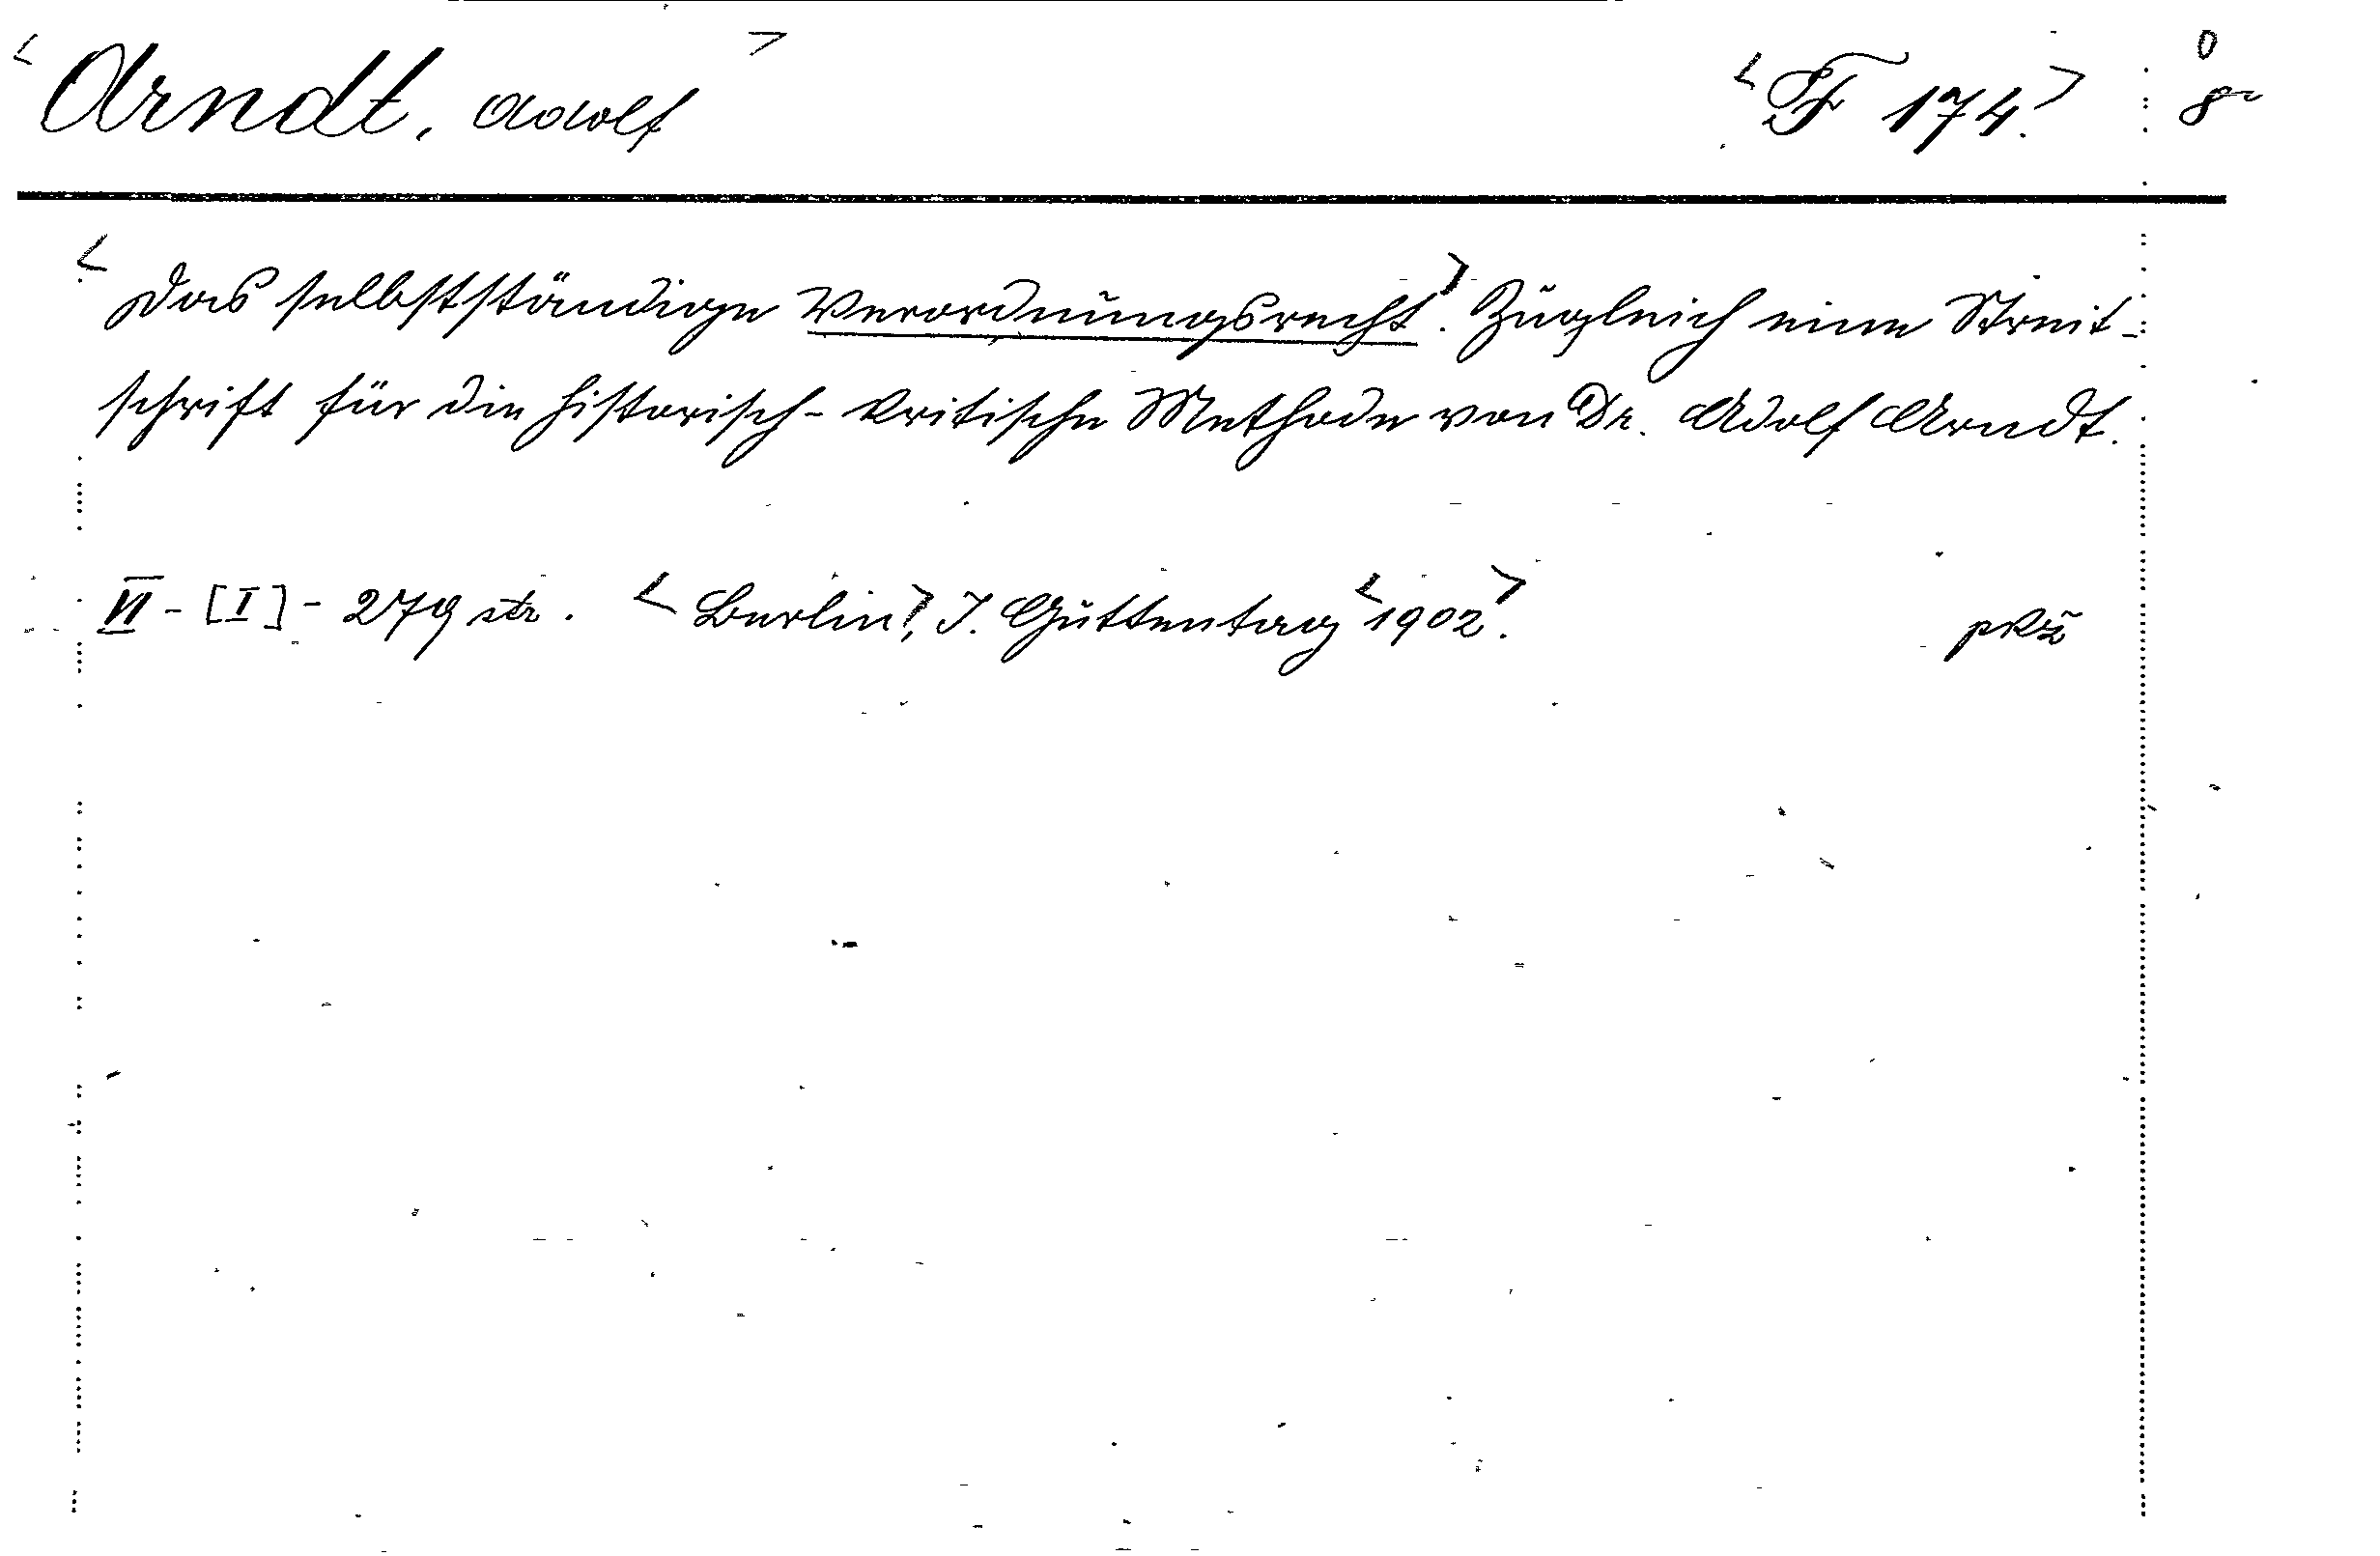 <Arndt, Adolf> <F 174.> 8°
<Das selbstständige Verordnungsrecht>. Zugleich eine Streit-
schrift für die historisch-kritische Methode von Dr. Adolf Arndt.
VI - [I] - 279 str. <Berlin>, J. Guttentag <1902>.